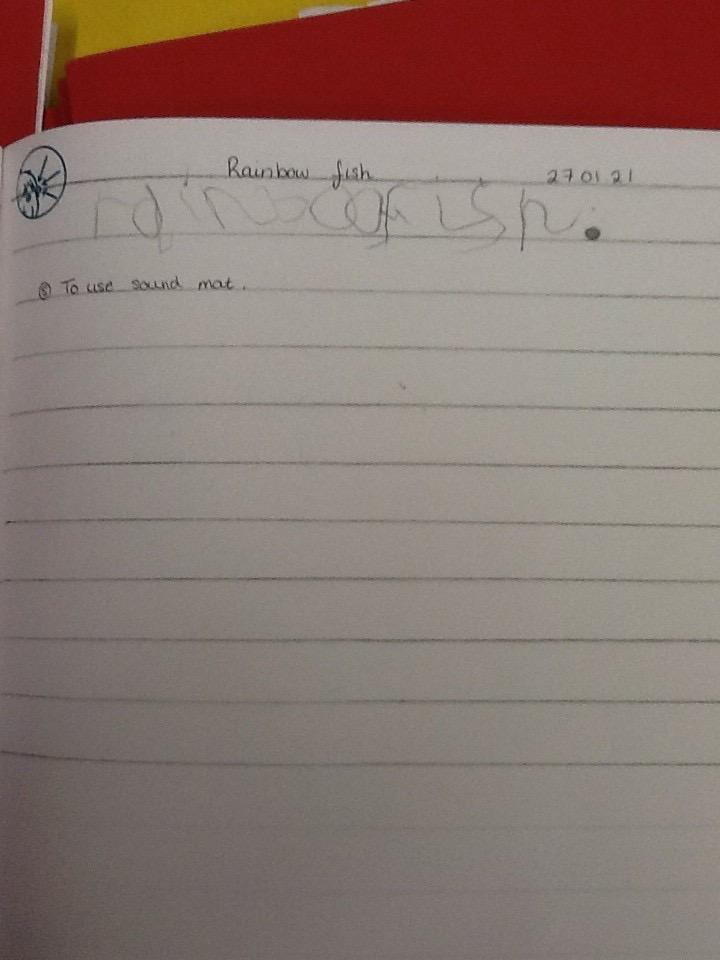 Rainbow fish 27 01 21
rainboofish.
Ⓢ To use sound mat.